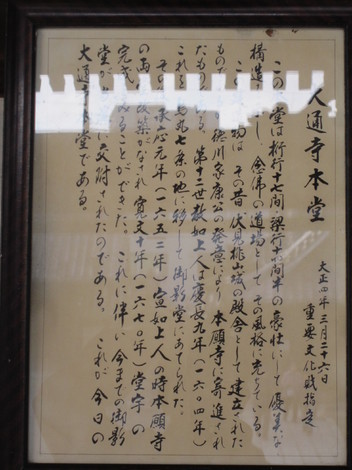 大通寺本堂
大正四年三月二十六日
重要文化財指定
この堂は桁行十七間梁行十六間半の豪壮にして優美な
構造 し、念佛の道場として その風格に充ちている。
こ 物は その昔 伏見桃山城の殿舎として 建立された
もので 徳川家康公の発意により 本願寺に寄進され
たもの る。第十二世教如上人は慶長九年（一六〇四年）
これ 烏丸七条の地に移して御影堂にあてられた。
その 承応元年（一六五二年）宣如上人の時本願寺
の両 改築がなされ 寛文十年（一六七〇年）堂宇の
完成 ることができた。これに伴い 今までの御影
堂が に交附されたのである。これが今日の
大通寺 堂である。